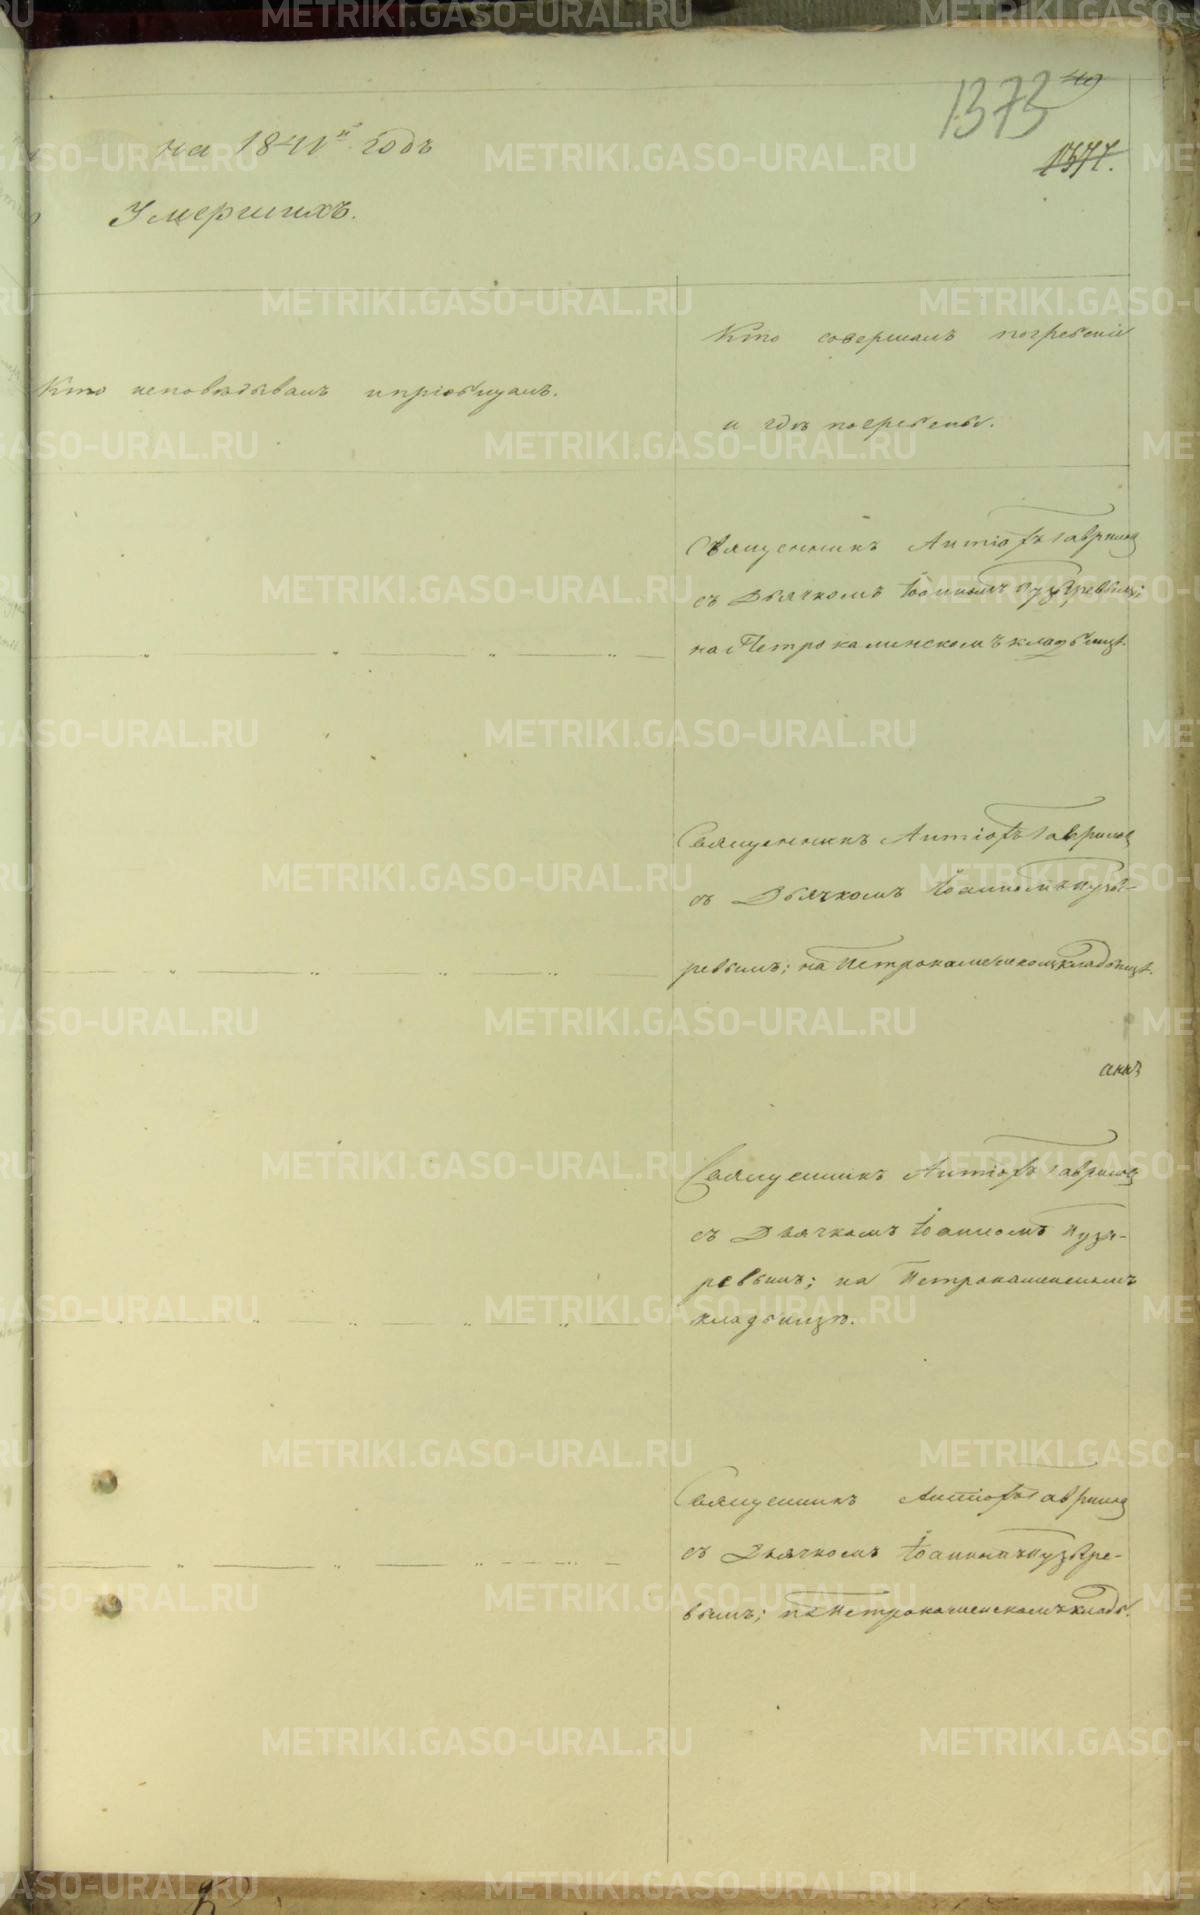 1373
40
1377.
на 1841й годъ
Умершихъ.
Кто исповѣдывалъ и пріобщалъ.
Кто совершалъ погребеніе
и гдѣ погребены.
Священникъ Антіохъ Гаврилов
съ Дьячкомъ Іоанномъ Пузыревымъ;
на Петрокаменскомъ кладбищѣ.
Священникъ Антіохъ Гаврилов
съ Дьячкомъ Іоанномъ Пузы-
ревымъ; на Петрокаменскомъ кладбищѣ.
Священникъ Антіохъ Гаврилов
съ Дьячкомъ Іоанномъ Пузы-
ревымъ; на Петрокаменскомъ
кладбищѣ.
Священникъ Антіохъ Гаврилов
съ Дьячкомъ Іоанномъ Пузыре-
вымъ; на Петрокаменскомъ кладб.
METRIKI.GASO-URAL.RU